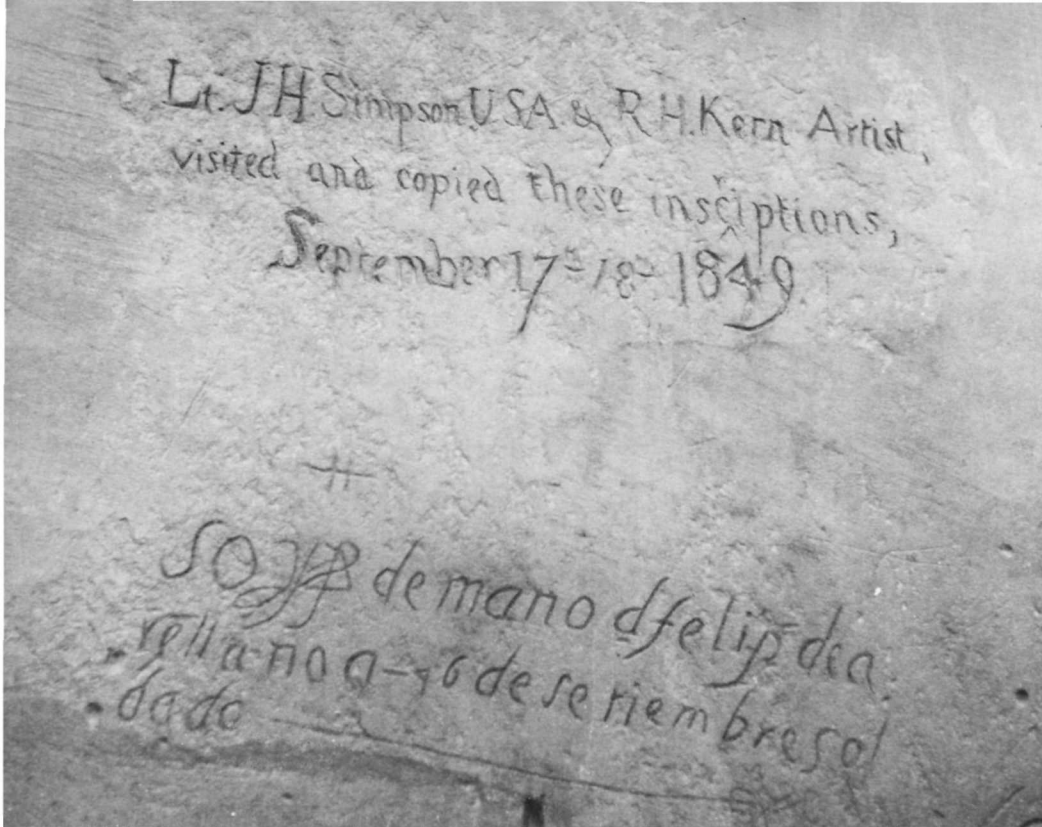 Lt. J H. Simpson. U S A & R. H. Kern Artist,
visited and copied these insciptions,
r
September 17th 18th 1849.
Soy de mano d felipe de a
rellano a 16 de setiembre sol
dado